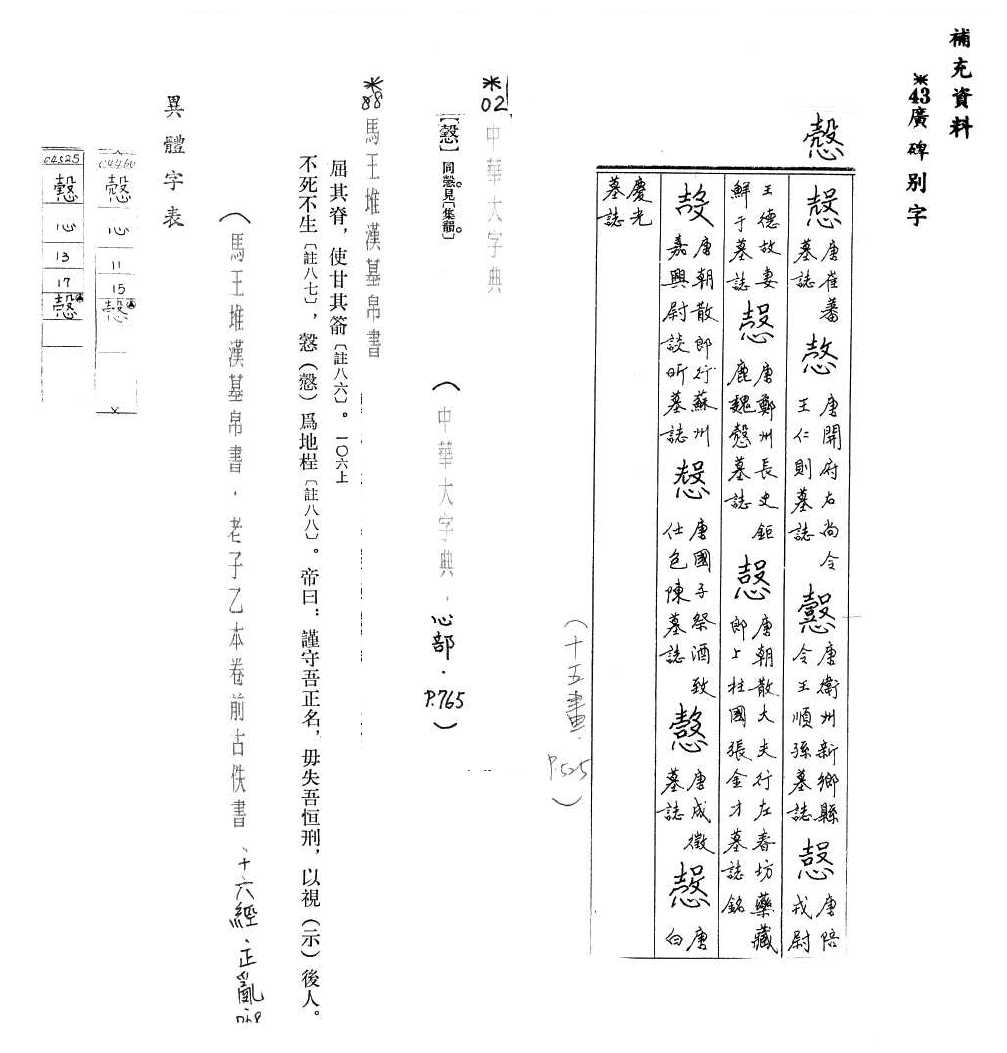 補充資料
*43廣碑別字
慤
愨唐崔蕃墓誌 慤唐開府右尚令王仁則墓誌 唐衛州新鄉縣令王順孫墓誌 唐陪戎尉
王德故妻鮮于墓誌 唐鄭州長史鉅鹿魏愨墓誌 唐朝散大夫行左春坊藥藏郎上柱國張金才墓誌銘
唐朝散郎行蘇州嘉興尉談昕墓誌 唐國子祭酒致仕包陳墓誌 唐成徵墓誌 唐白
慶光墓誌
(十五畫.P.525)
*02中華大字典
【愨】同慤。見〔集韻〕。
(中華大字典.心部.P.765)
*88馬王堆漢墓帛書
屈其脊,使甘其箭〔註八六〕。一〇六上
不死不生〔註八七〕,愨(慤)爲地桯〔註八八〕。帝曰:謹守吾正名,毋失吾恒刑,以視(示)後人。
(馬王堆漢墓帛書.老子乙本卷前古佚書.十六經.正亂
異體字表
C4460
愨
心
11
15
愨
X
C4525
慤
心
13
17
慤